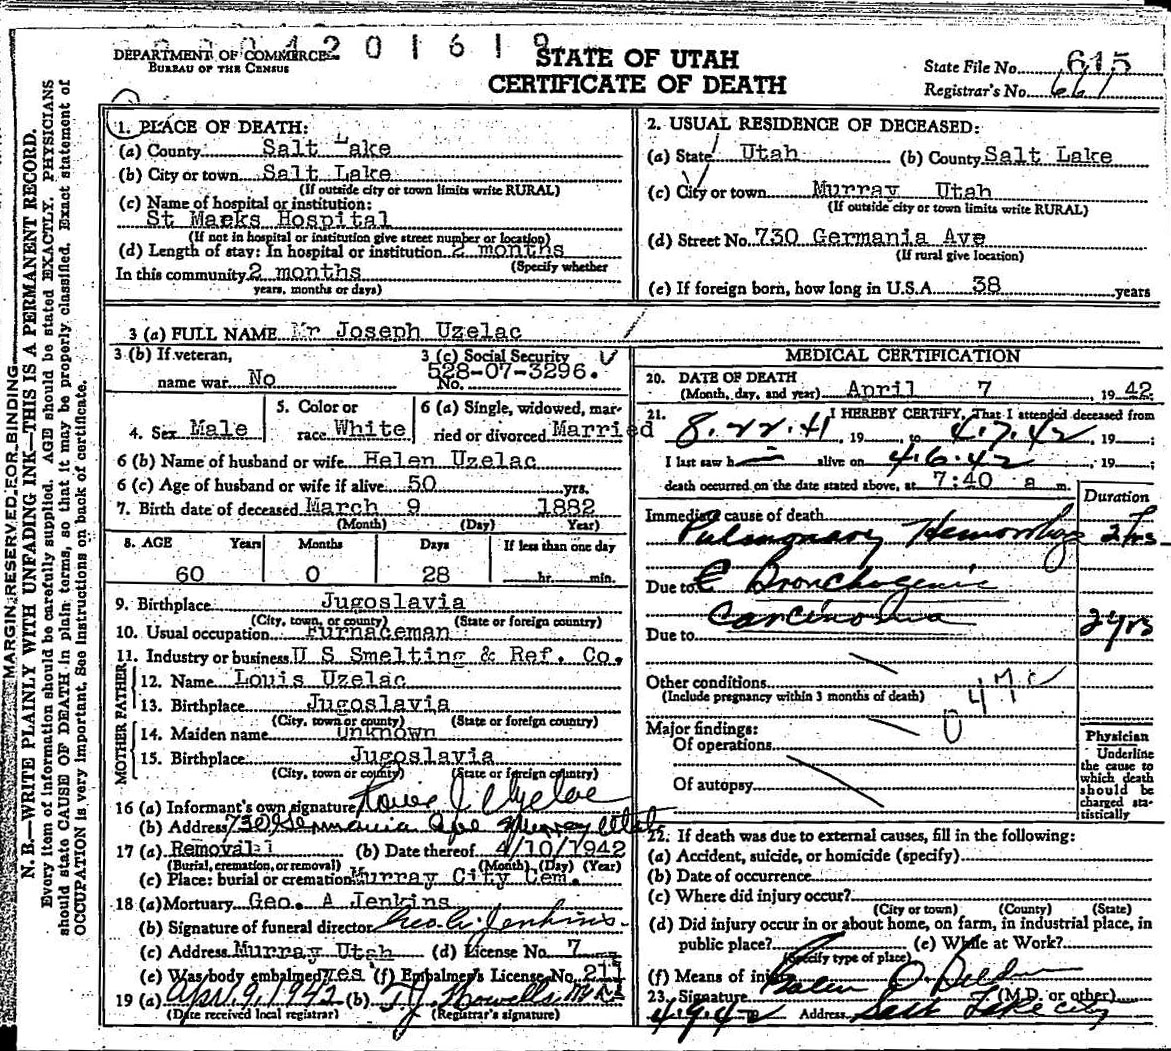 2 0 1 6 1 9
DEPARTMENT OF COMMERCE
BUREAU OF THE CENSUS
STATE OF UTAH
CERTIFICATE OF DEATH
State File No. 615
Registrar's No. 661
MARGIN RESERVED FOR BINDING
N. B.—WRITE PLAINLY WITH UNFADING INK—THIS IS A PERMANENT RECORD.
Every item of information should be carefully supplied. AGE should be stated EXACTLY. PHYSICIANS
should state CAUSE OF DEATH in plain terms, so that it may be properly classified. Exact statement of
OCCUPATION is very important. See instructions on back of certificate.
1. PLACE OF DEATH:
(a) County Salt Lake
(b) City or town Salt Lake
(If outside city or town limits write RURAL)
(c) Name of hospital or institution:
St Marks Hospital
(If not in hospital or institution give street number or location)
(d) Length of stay: In hospital or institution 2 months
(Specify whether
In this community 2 months
years, months or days)
2. USUAL RESIDENCE OF DECEASED:
(a) State Utah (b) County Salt Lake
(c) City or town Murray Utah
(If outside city or town limits write RURAL)
(d) Street No. 730 Germania Ave
(If rural give location)
(e) If foreign born, how long in U.S.A. 38 years
3 (a) FULL NAME Mr Joseph Uzelac
3 (b) If veteran,
name war No
3 (c) Social Security
No. 528-07-3296.
4. Sex Male
5. Color or
race White
6 (a) Single, widowed, mar-
ried or divorced Married
6 (b) Name of husband or wife Helen Uzelac
6 (c) Age of husband or wife if alive 50 yrs.
7. Birth date of deceased March 9 1882
(Month) (Day) Year)
8. AGE Years Months Days If less than one day
60 0 28 hr. min.
9. Birthplace Jugoslavia
(City, town, or county) (State or foreign country)
10. Usual occupation Furnaceman
11. Industry or business U S Smelting & Ref. Co.
FATHER
12. Name Louis Uzelac
13. Birthplace Jugoslavia
(City, town or county) (State or foreign country)
MOTHER
14. Maiden name Unknown
15. Birthplace Jugoslavia
(City, town or county) (State or foreign country)
16 (a) Informant's own signature
(b) Address 730 Germania Ave Murray Utah
17 (a) Removal (b) Date thereof 4/10/1942
(Burial, cremation, or removal) (Month) (Day) (Year)
(c) Place: burial or cremation Murray City Cem.
18 (a) Mortuary Geo. A Jenkins
(b) Signature of funeral director Geo. A. Jenkins
(c) Address Murray Utah (d) License No. 7
(e) Was body embalmed? yes (f) Embalmer's License No. 211
19 (a) Apr. 9, 1942 (b) T.J. Howells
(Date received local registrar) (Registrar's signature)
MEDICAL CERTIFICATION
20. DATE OF DEATH
(Month, day, and year) April 7 1942.
21. I HEREBY CERTIFY, That I attended deceased from
8.22.41, 19 to 4.7.42, 19 ;
I last saw h alive on 4.6.42, 19 ;
death occurred on the date stated above, at 7:40 a m.
Duration
Immediate cause of death
Pulmonary Hemorrhage 2 hrs
Due to Bronchogenic
carcinoma 2 yrs
Due to
Other conditions
(Include pregnancy within 3 months of death)
Major findings:
Of operations
Of autopsy
Physician
Underline
the cause to
which death
should be
charged sta-
tistically
22. If death was due to external causes, fill in the following:
(a) Accident, suicide, or homicide (specify)
(b) Date of occurrence
(c) Where did injury occur?
(City or town) (County) (State)
(d) Did injury occur in or about home, on farm, in industrial place, in
public place? (e) While at Work?
(Specify type of place)
(f) Means of injury
23. Signature (M.D. or other)
4.9.42 Address Salt Lake City